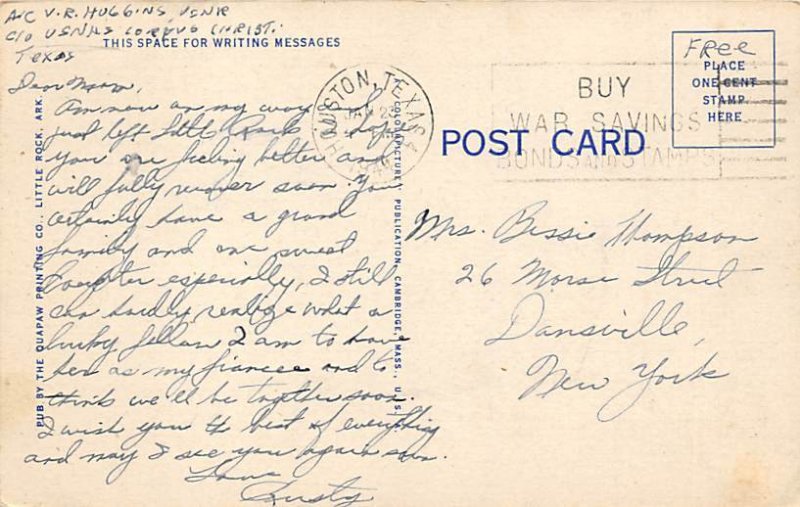 A/C V.R. HUGGINS, USNR
C/O USNAS CORPUS CHRISTI
TEXAS
THIS SPACE FOR WRITING MESSAGES
Dear Mom,
Am now on my way
just left Little Rock. I hope
you are feeling better and
will fully recover soon. You
certainly have a grand
family and one sweet
daughter especially, I still
can hardly realize what a
lucky fellow I am to have
her as my fiancee and to
think we'll be together soon.
I wish you the best of everything
and may I see you again soon.
Love
Rusty
PUB BY THE QUAPAW PRINTING CO., LITTLE ROCK, ARK.
COLOR PICTURE PUBLICATION, CAMBRIDGE, MASS., U.S.
HOUSTON, TEXAS
JAN 2
BUY
WAR SAVINGS
BONDS AND STAMPS
Free
PLACE
ONE CENT
STAMP
HERE
POST CARD
Mrs. Bessie Thompson
26 Morse Street
Dansville,
New York